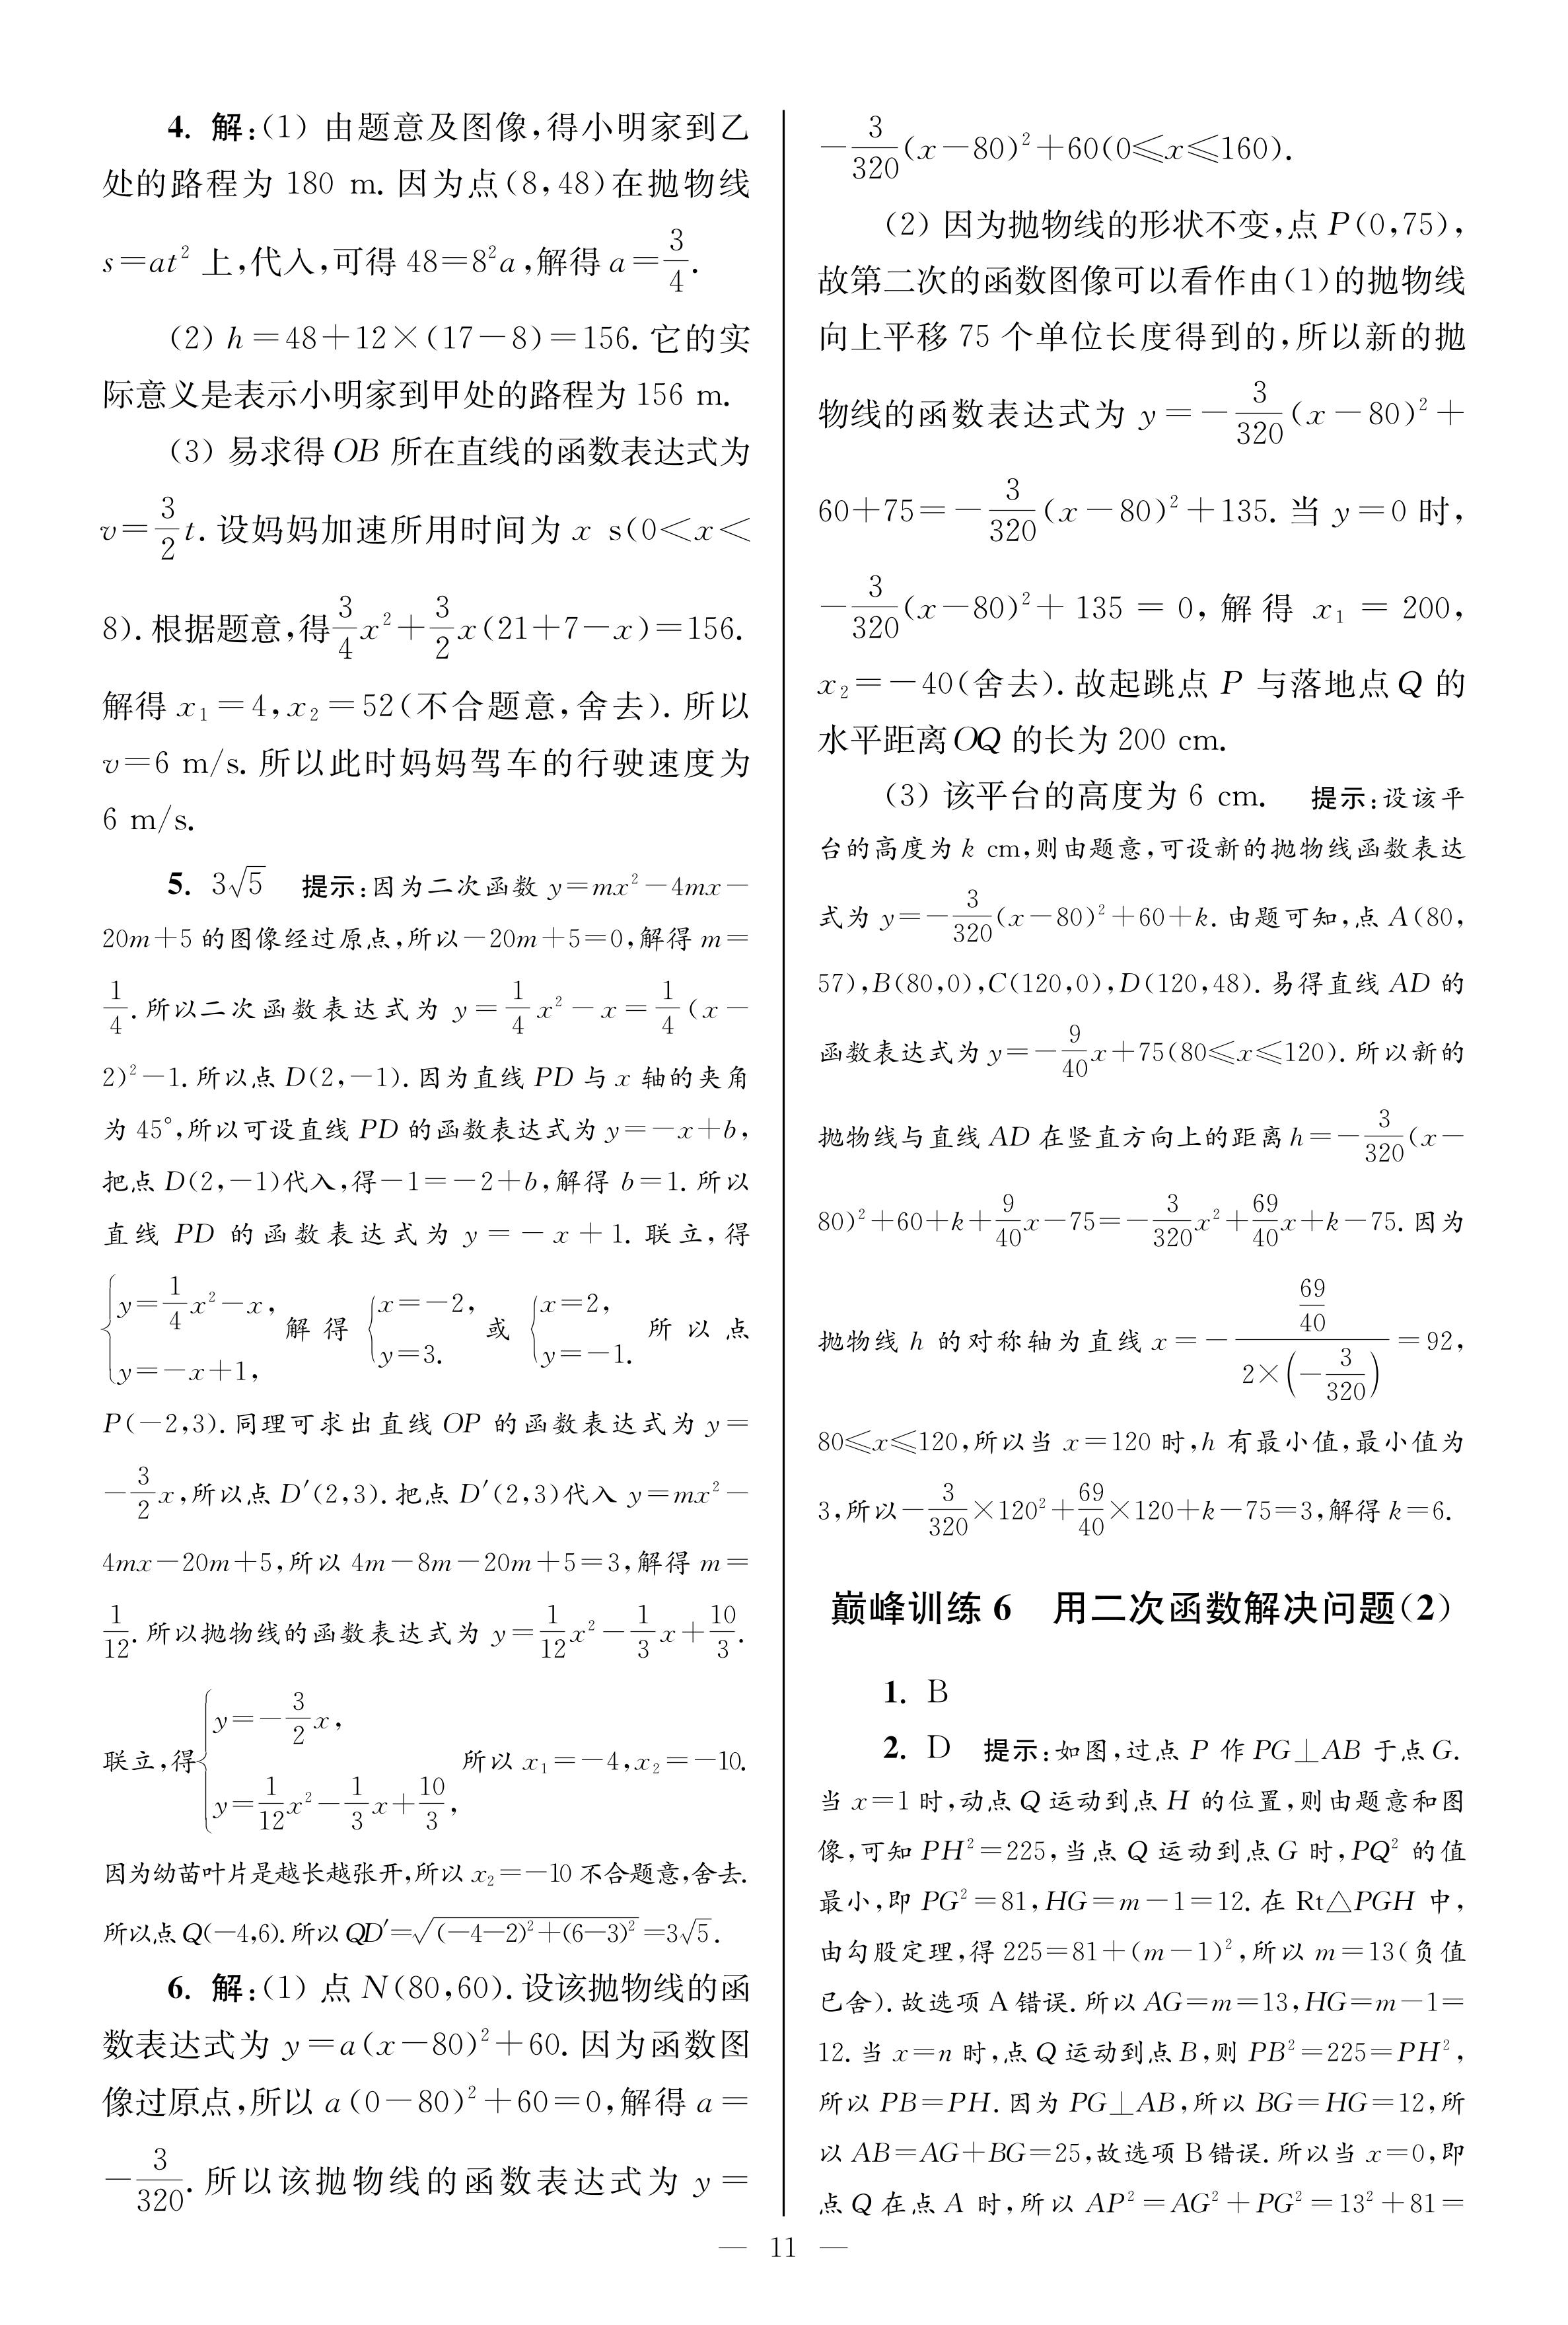 4. 解:(1) 由题意及图像,得小明家到乙
处的路程为 180 m. 因为点(8,48)在抛物线
s=at² 上,代入,可得 48=8²a,解得 a=3/4.
(2) h=48+12×(17-8)=156. 它的实
际意义是表示小明家到甲处的路程为 156 m.
(3) 易求得 OB 所在直线的函数表达式为
v=3/2t. 设妈妈加速所用时间为 x s(0<x<
8). 根据题意,得3/4x²+3/2x(21+7-x)=156.
解得 x₁=4,x₂=52(不合题意,舍去). 所以
v=6 m/s. 所以此时妈妈驾车的行驶速度为
6 m/s.
5. 3√5 提示:因为二次函数 y=mx²-4mx-
20m+5 的图像经过原点,所以-20m+5=0,解得 m=
1/4. 所以二次函数表达式为 y=1/4x²-x=1/4(x-
2)²-1. 所以点 D(2,-1). 因为直线 PD 与 x 轴的夹角
为 45°,所以可设直线 PD 的函数表达式为 y=-x+b,
把点 D(2,-1)代入,得-1=-2+b,解得 b=1. 所以
直线 PD 的函数表达式为 y=-x+1. 联立,得
{y=1/4x²-x, y=-x+1, 解得 {x=-2, y=3. 或 {x=2, y=-1. 所以点
P(-2,3). 同理可求出直线 OP 的函数表达式为 y=
-3/2x,所以点 D′(2,3). 把点 D′(2,3)代入 y=mx²-
4mx-20m+5,所以 4m-8m-20m+5=3,解得 m=
1/12. 所以抛物线的函数表达式为 y=1/12x²-1/3x+10/3.
联立,得{y=-3/2x, y=1/12x²-1/3x+10/3, 所以 x₁=-4,x₂=-10.
因为幼苗叶片是越长越张开,所以 x₂=-10 不合题意,舍去.
所以点 Q(-4,6). 所以 QD′=√((-4-2)²+(6-3)²)=3√5.
6. 解:(1) 点 N(80,60). 设该抛物线的函
数表达式为 y=a(x-80)²+60. 因为函数图
像过原点,所以 a(0-80)²+60=0,解得 a=
-3/320. 所以该抛物线的函数表达式为 y=
-3/320(x-80)²+60(0≤x≤160).
(2) 因为抛物线的形状不变,点 P(0,75),
故第二次的函数图像可以看作由(1)的抛物线
向上平移 75 个单位长度得到的,所以新的抛
物线的函数表达式为 y=-3/320(x-80)²+
60+75=-3/320(x-80)²+135. 当 y=0 时,
-3/320(x-80)²+135=0,解得 x₁=200,
x₂=-40(舍去). 故起跳点 P 与落地点 Q 的
水平距离 OQ 的长为 200 cm.
(3) 该平台的高度为 6 cm. 提示:设该平
台的高度为 k cm,则由题意,可设新的抛物线函数表达
式为 y=-3/320(x-80)²+60+k. 由题可知,点 A(80,
57),B(80,0),C(120,0),D(120,48). 易得直线 AD 的
函数表达式为 y=-9/40x+75(80≤x≤120). 所以新的
抛物线与直线 AD 在竖直方向上的距离 h=-3/320(x-
80)²+60+k+9/40x-75=-3/320x²+69/40x+k-75. 因为
抛物线 h 的对称轴为直线 x=-(69/40)/(2×(-3/320))=92,
80≤x≤120,所以当 x=120 时,h 有最小值,最小值为
3,所以-3/320×120²+69/40×120+k-75=3,解得 k=6.
巅峰训练 6 用二次函数解决问题(2)
1. B
2. D 提示:如图,过点 P 作 PG⊥AB 于点 G.
当 x=1 时,动点 Q 运动到点 H 的位置,则由题意和图
像,可知 PH²=225,当点 Q 运动到点 G 时,PQ² 的值
最小,即 PG²=81,HG=m-1=12. 在 Rt△PGH 中,
由勾股定理,得 225=81+(m-1)²,所以 m=13(负值
已舍). 故选项 A 错误. 所以 AG=m=13,HG=m-1=
12. 当 x=n 时,点 Q 运动到点 B,则 PB²=225=PH²,
所以 PB=PH. 因为 PG⊥AB,所以 BG=HG=12,所
以 AB=AG+BG=25,故选项 B 错误. 所以当 x=0,即
点 Q 在点 A 时,所以 AP²=AG²+PG²=13²+81=
— 11 —